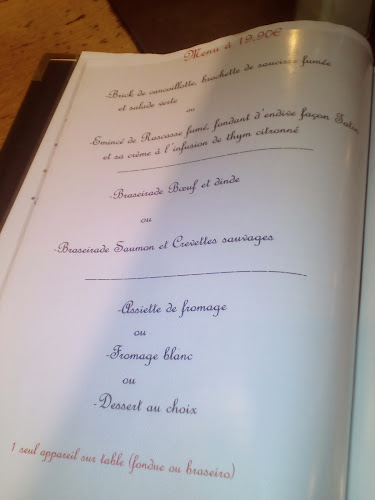 Menu à 19,90€
-Brick de cancoillotte, brochette de saucisse fumée
et salade verte
ou
-Emincé de Rascasse fumé, fondant d'endive façon Tatin,
et sa crème à l'infusion de thym citronné
-Braseirade Bœuf et dinde
ou
-Braseirade Saumon et Crevettes sauvages
-Assiette de fromage
ou
-Fromage blanc
ou
-Dessert au choix
1 seul appareil sur table (fondue ou braseiro)